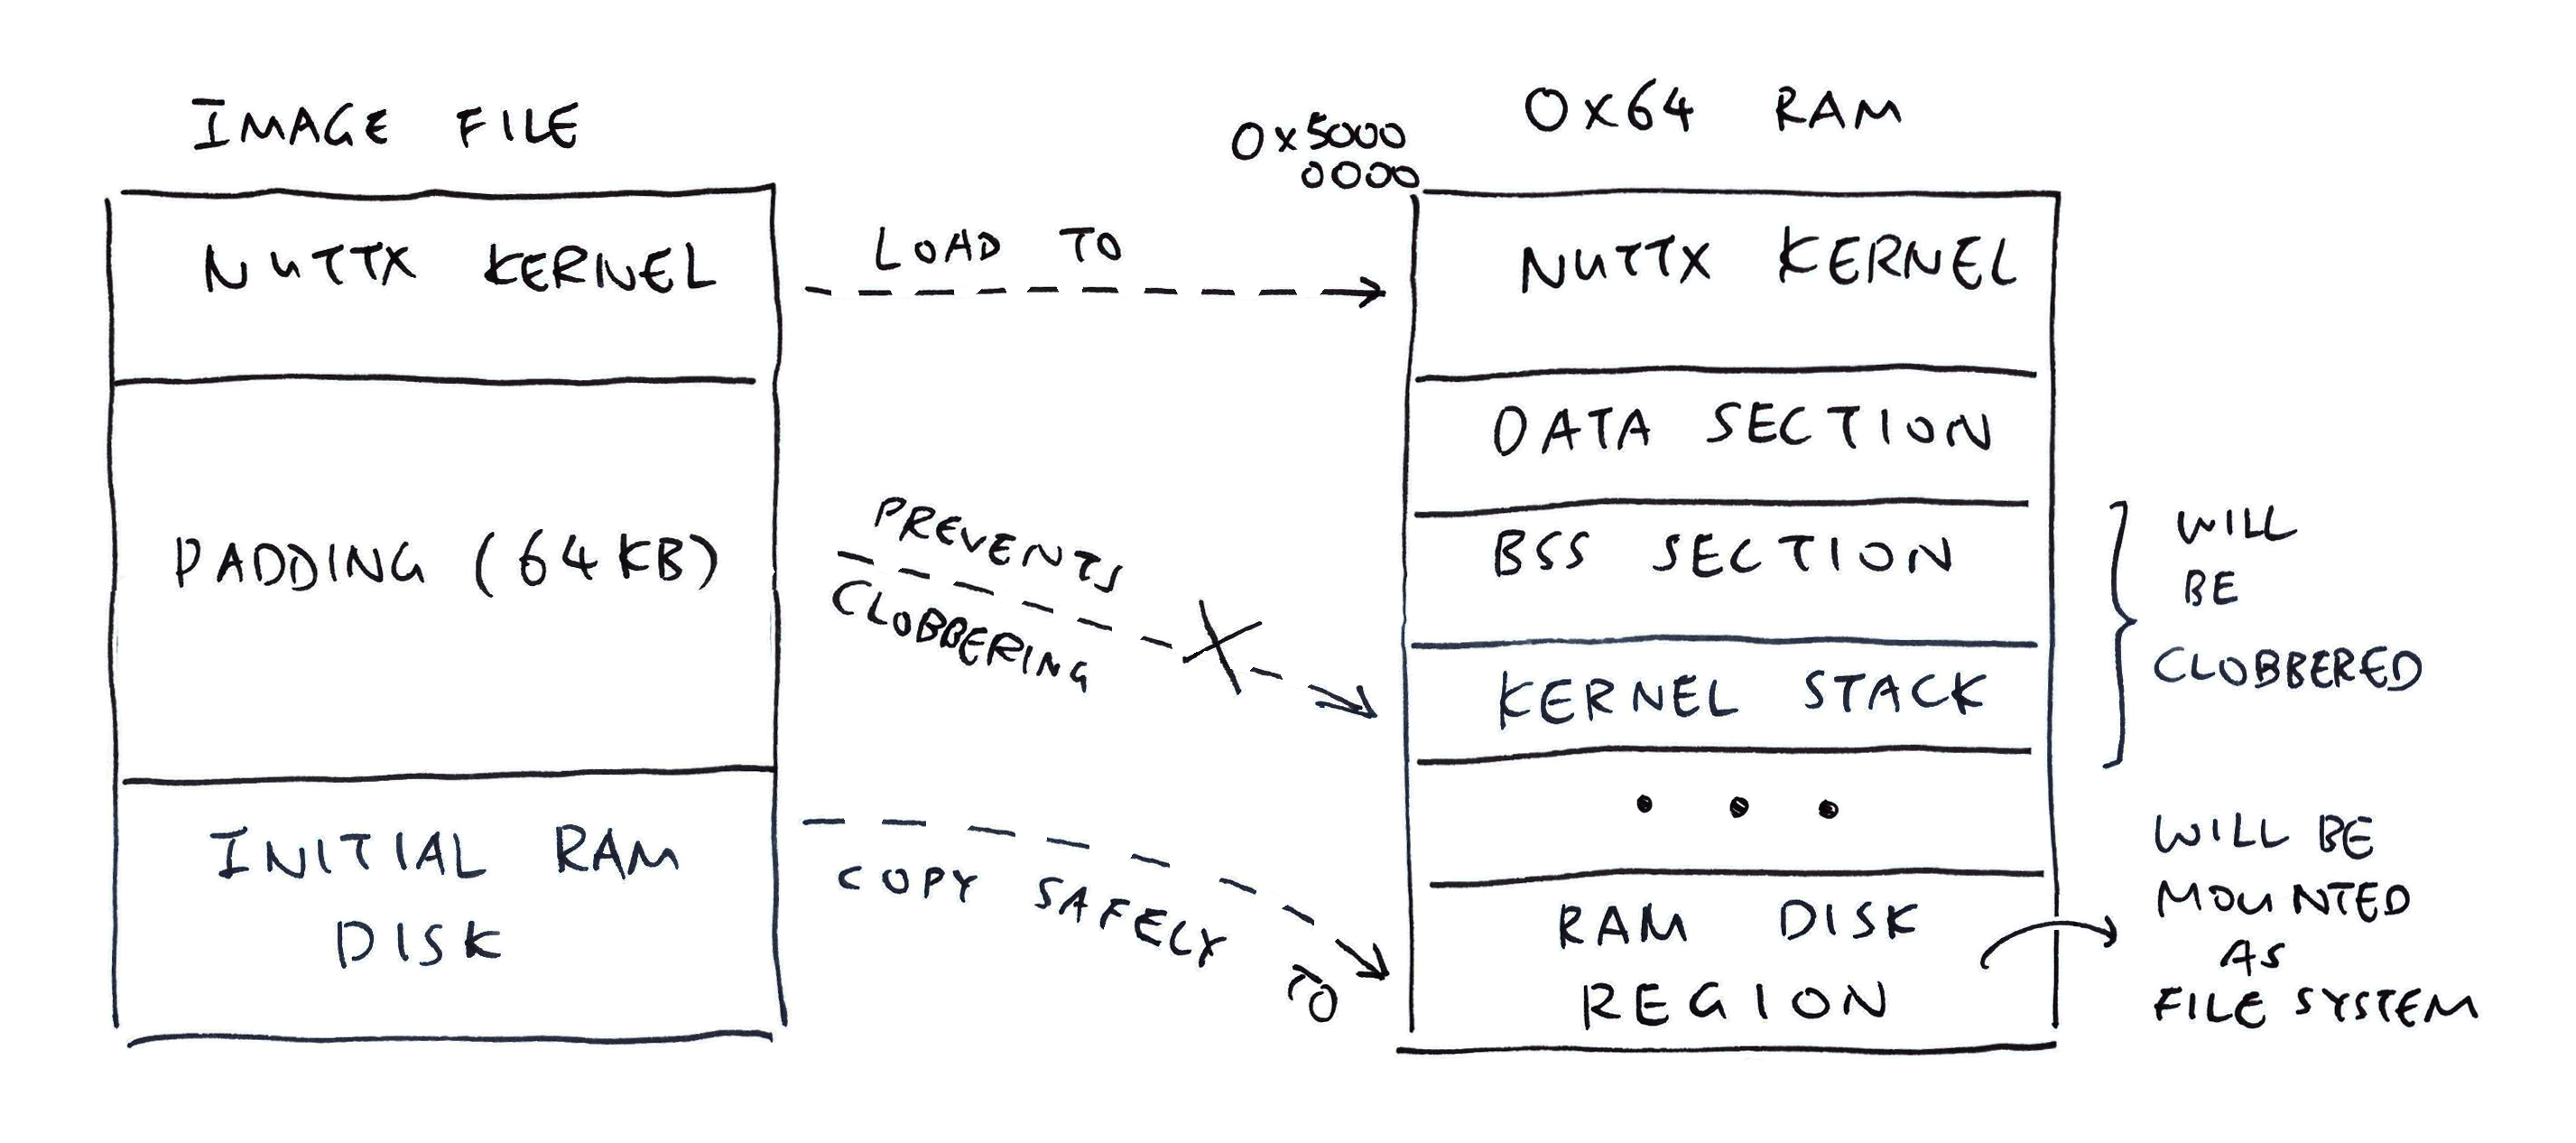 IMAGE FILE
NUTTX KERNEL
PADDING (64KB)
INITIAL RAM
DISK
LOAD TO
PREVENTS
CLOBBERING
COPY SAFELY TO
0x5000
0000
0X64 RAM
NUTTX KERNEL
DATA SECTION
BSS SECTION
KERNEL STACK
• • •
RAM DISK
REGION
WILL
BE
CLOBBERED
WILL BE
MOUNTED
AS
FILE SYSTEM